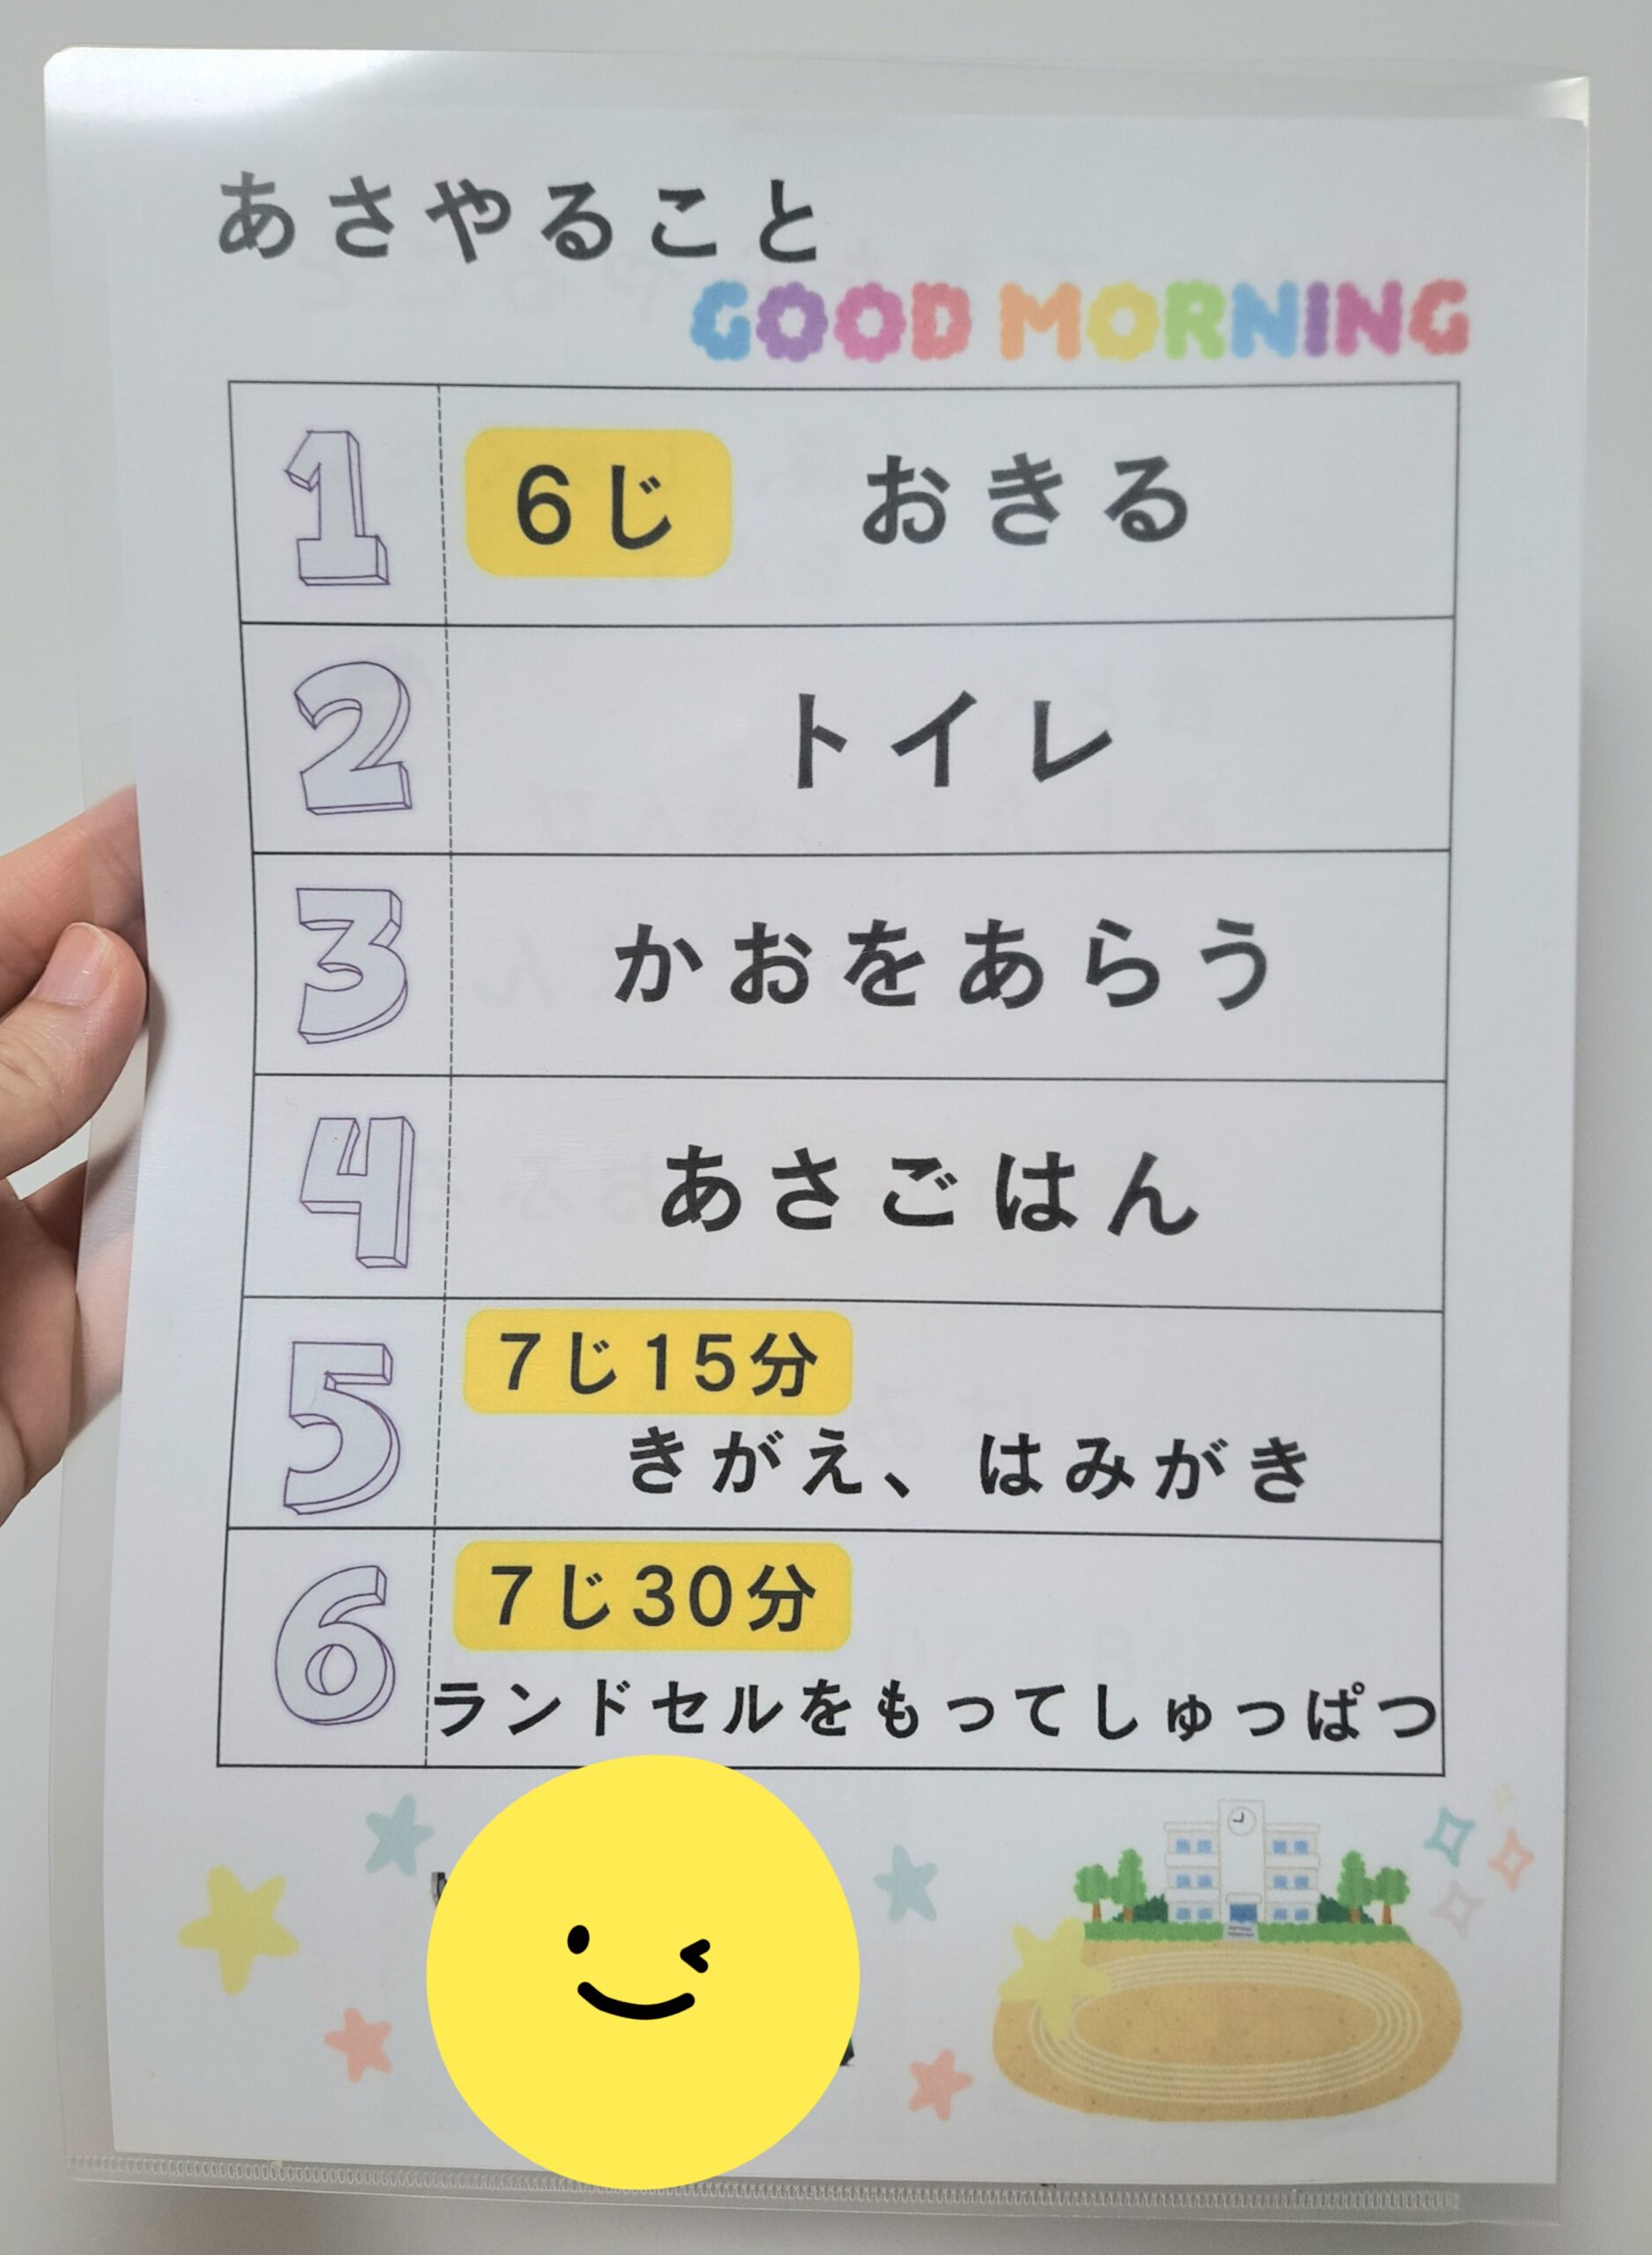 あさやること
GOOD MORNING
1 6じ おきる
2 トイレ
3 かおをあらう
4 あさごはん
5 7じ15分
きがえ、はみがき
6 7じ30分
ランドセルをもってしゅっぱつ